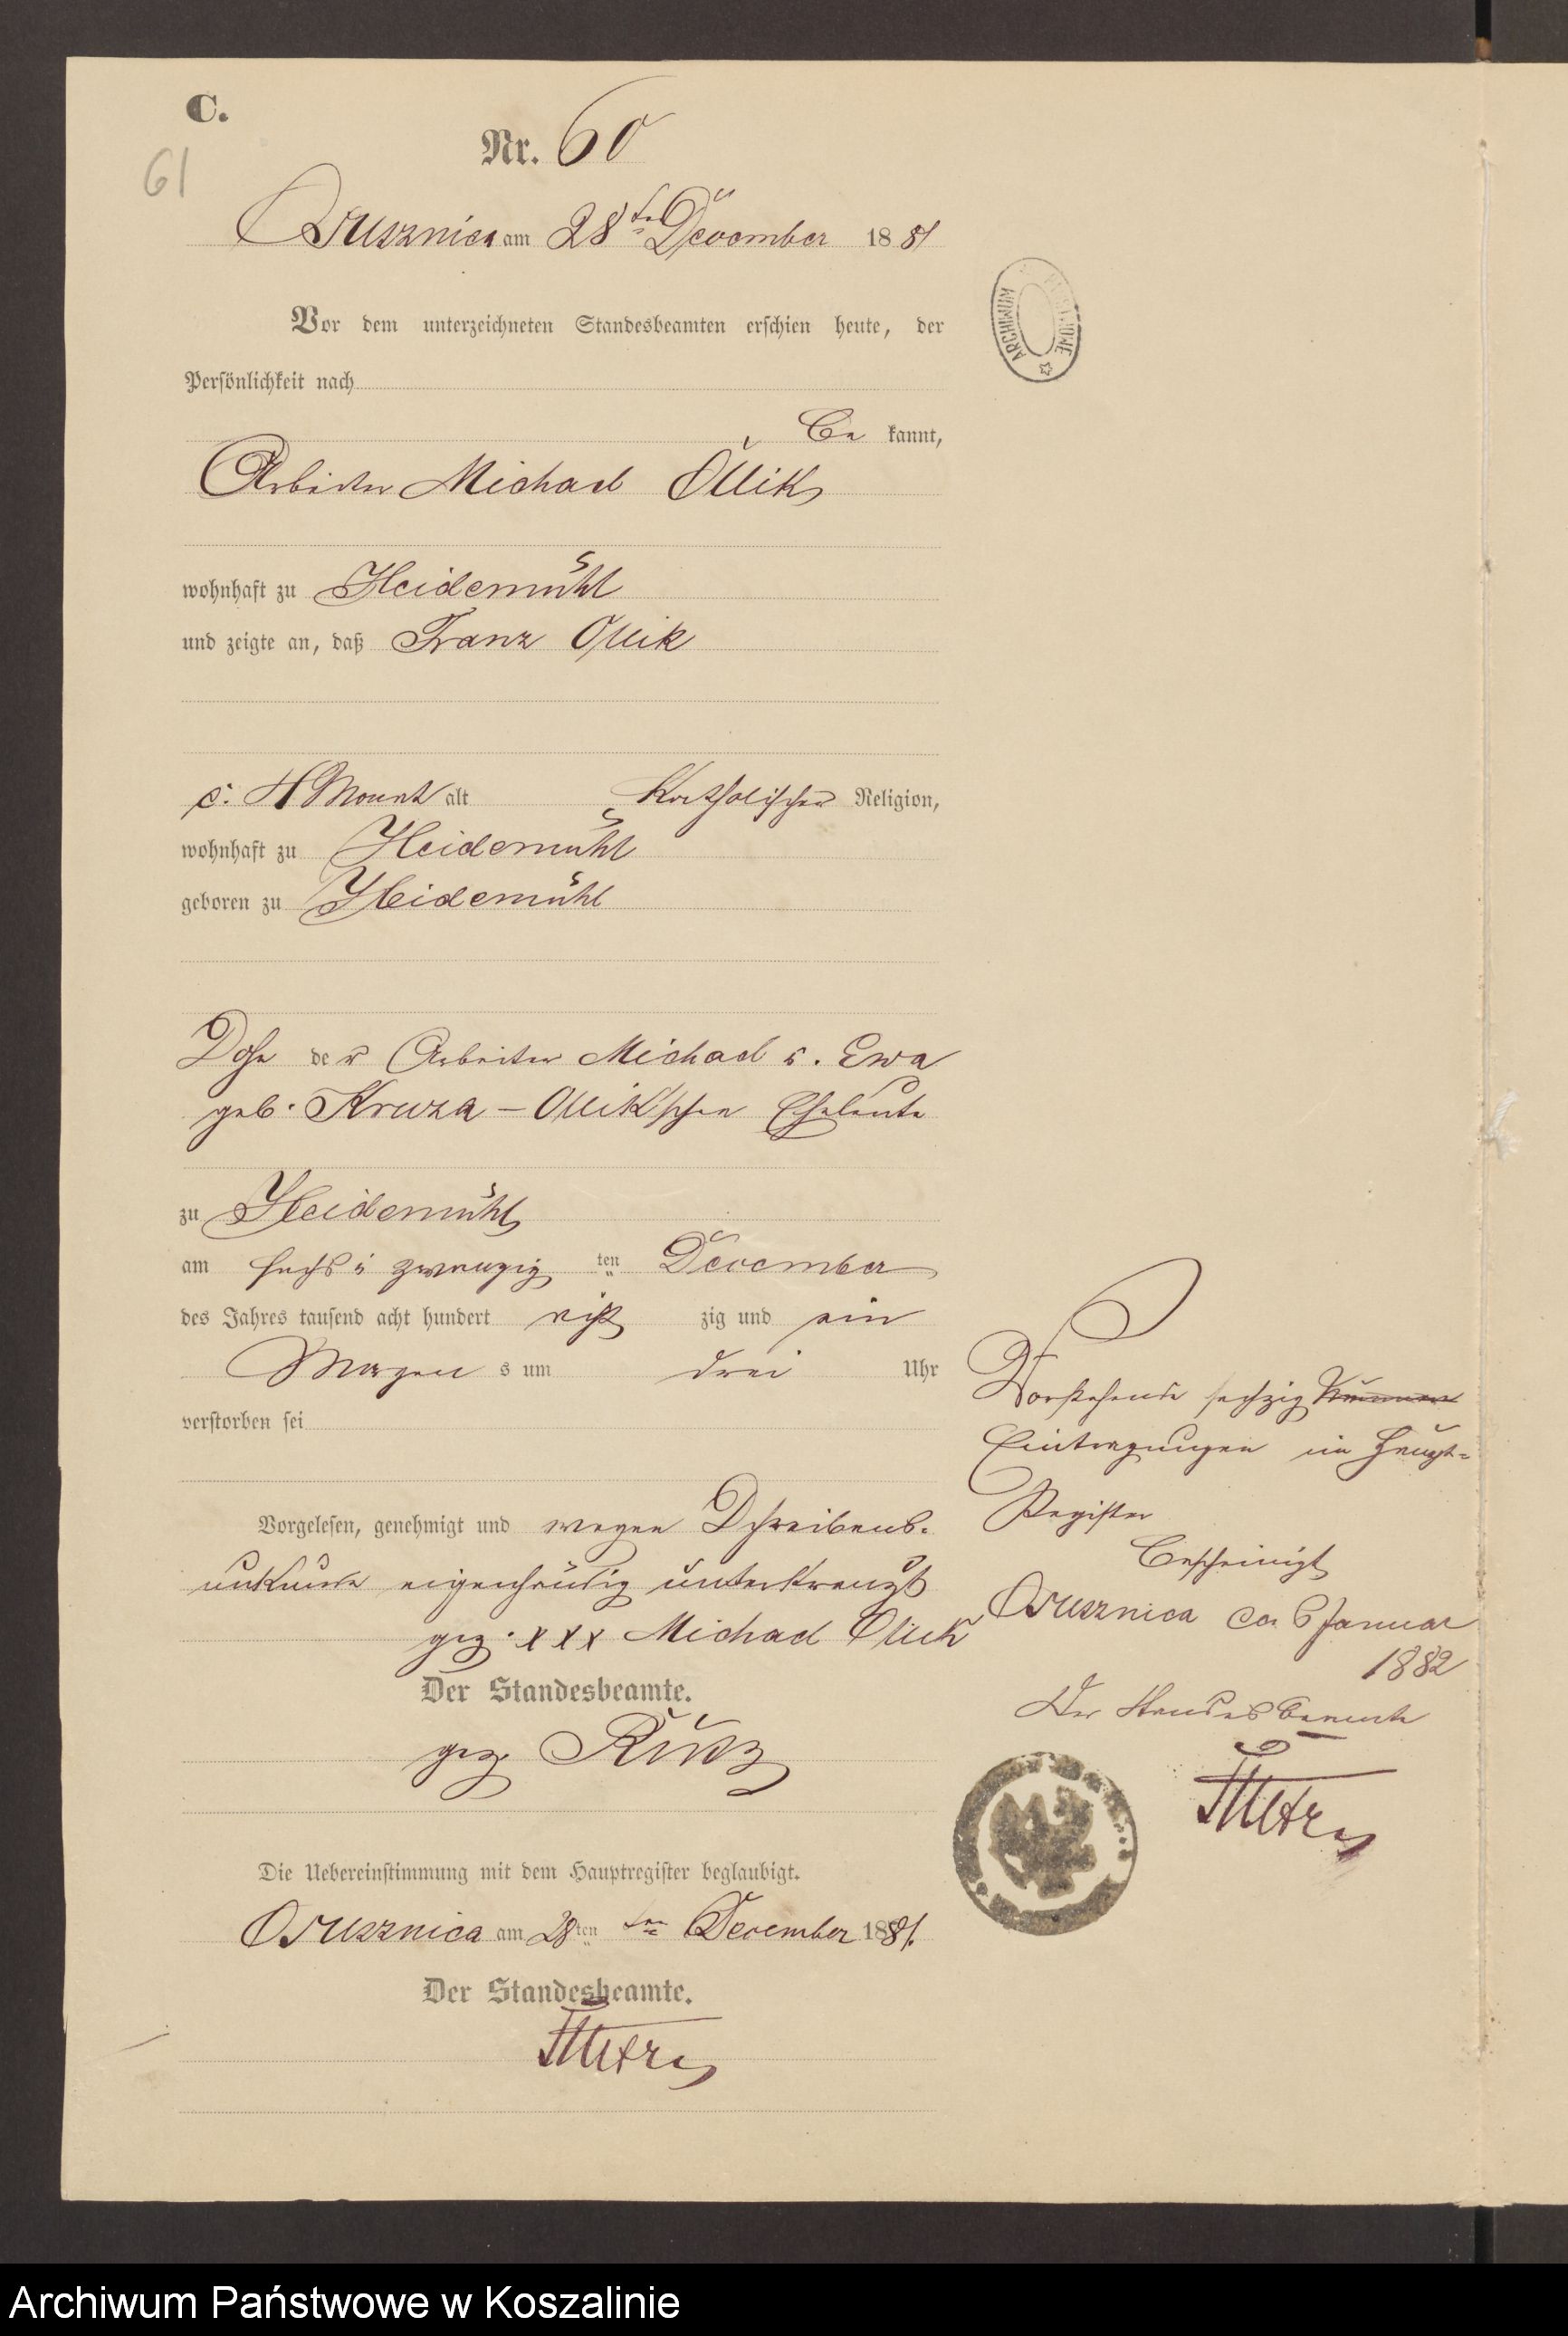 C.
Nr. 60
61
Ossusznica am 28ten December 1881
Vor dem unterzeichneten Standesbeamten erschien heute, der
Persönlichkeit nach
be kannt,
Arbeiter Michael Ollik
wohnhaft zu Heidemühl
und zeigte an, daß Franz Ollik
c. 4 Monat alt katholischer Religion,
wohnhaft zu Heidemühl
geboren zu Heidemühl
Sohn der Arbeiter Michael u. Ewa
geb. Kruza - Ollik'schen Eheleute
zu Heidemühl
am sechs u zwanzig ten December
des Jahres tausend acht hundert acht zig und ein
Morgen s um drei Uhr
verstorben sei
Vorgelesen, genehmigt und wegen Schreibens-
unkunde eigenhändig unterkreuzt
gez. xxx Michael Ollik
Der Standesbeamte.
gez.
Die Uebereinstimmung mit dem Hauptregister beglaubigt.
Ossusznica am 28ten December 1881.
Der Standesbeamte.
Vorstehende sechzig
Eintragungen im Haupt-
Register
bescheinigt
Ossusznica 6 Januar
1882
Der Standesbeamte
ARCHIWUM
Archiwum Państwowe w Koszalinie